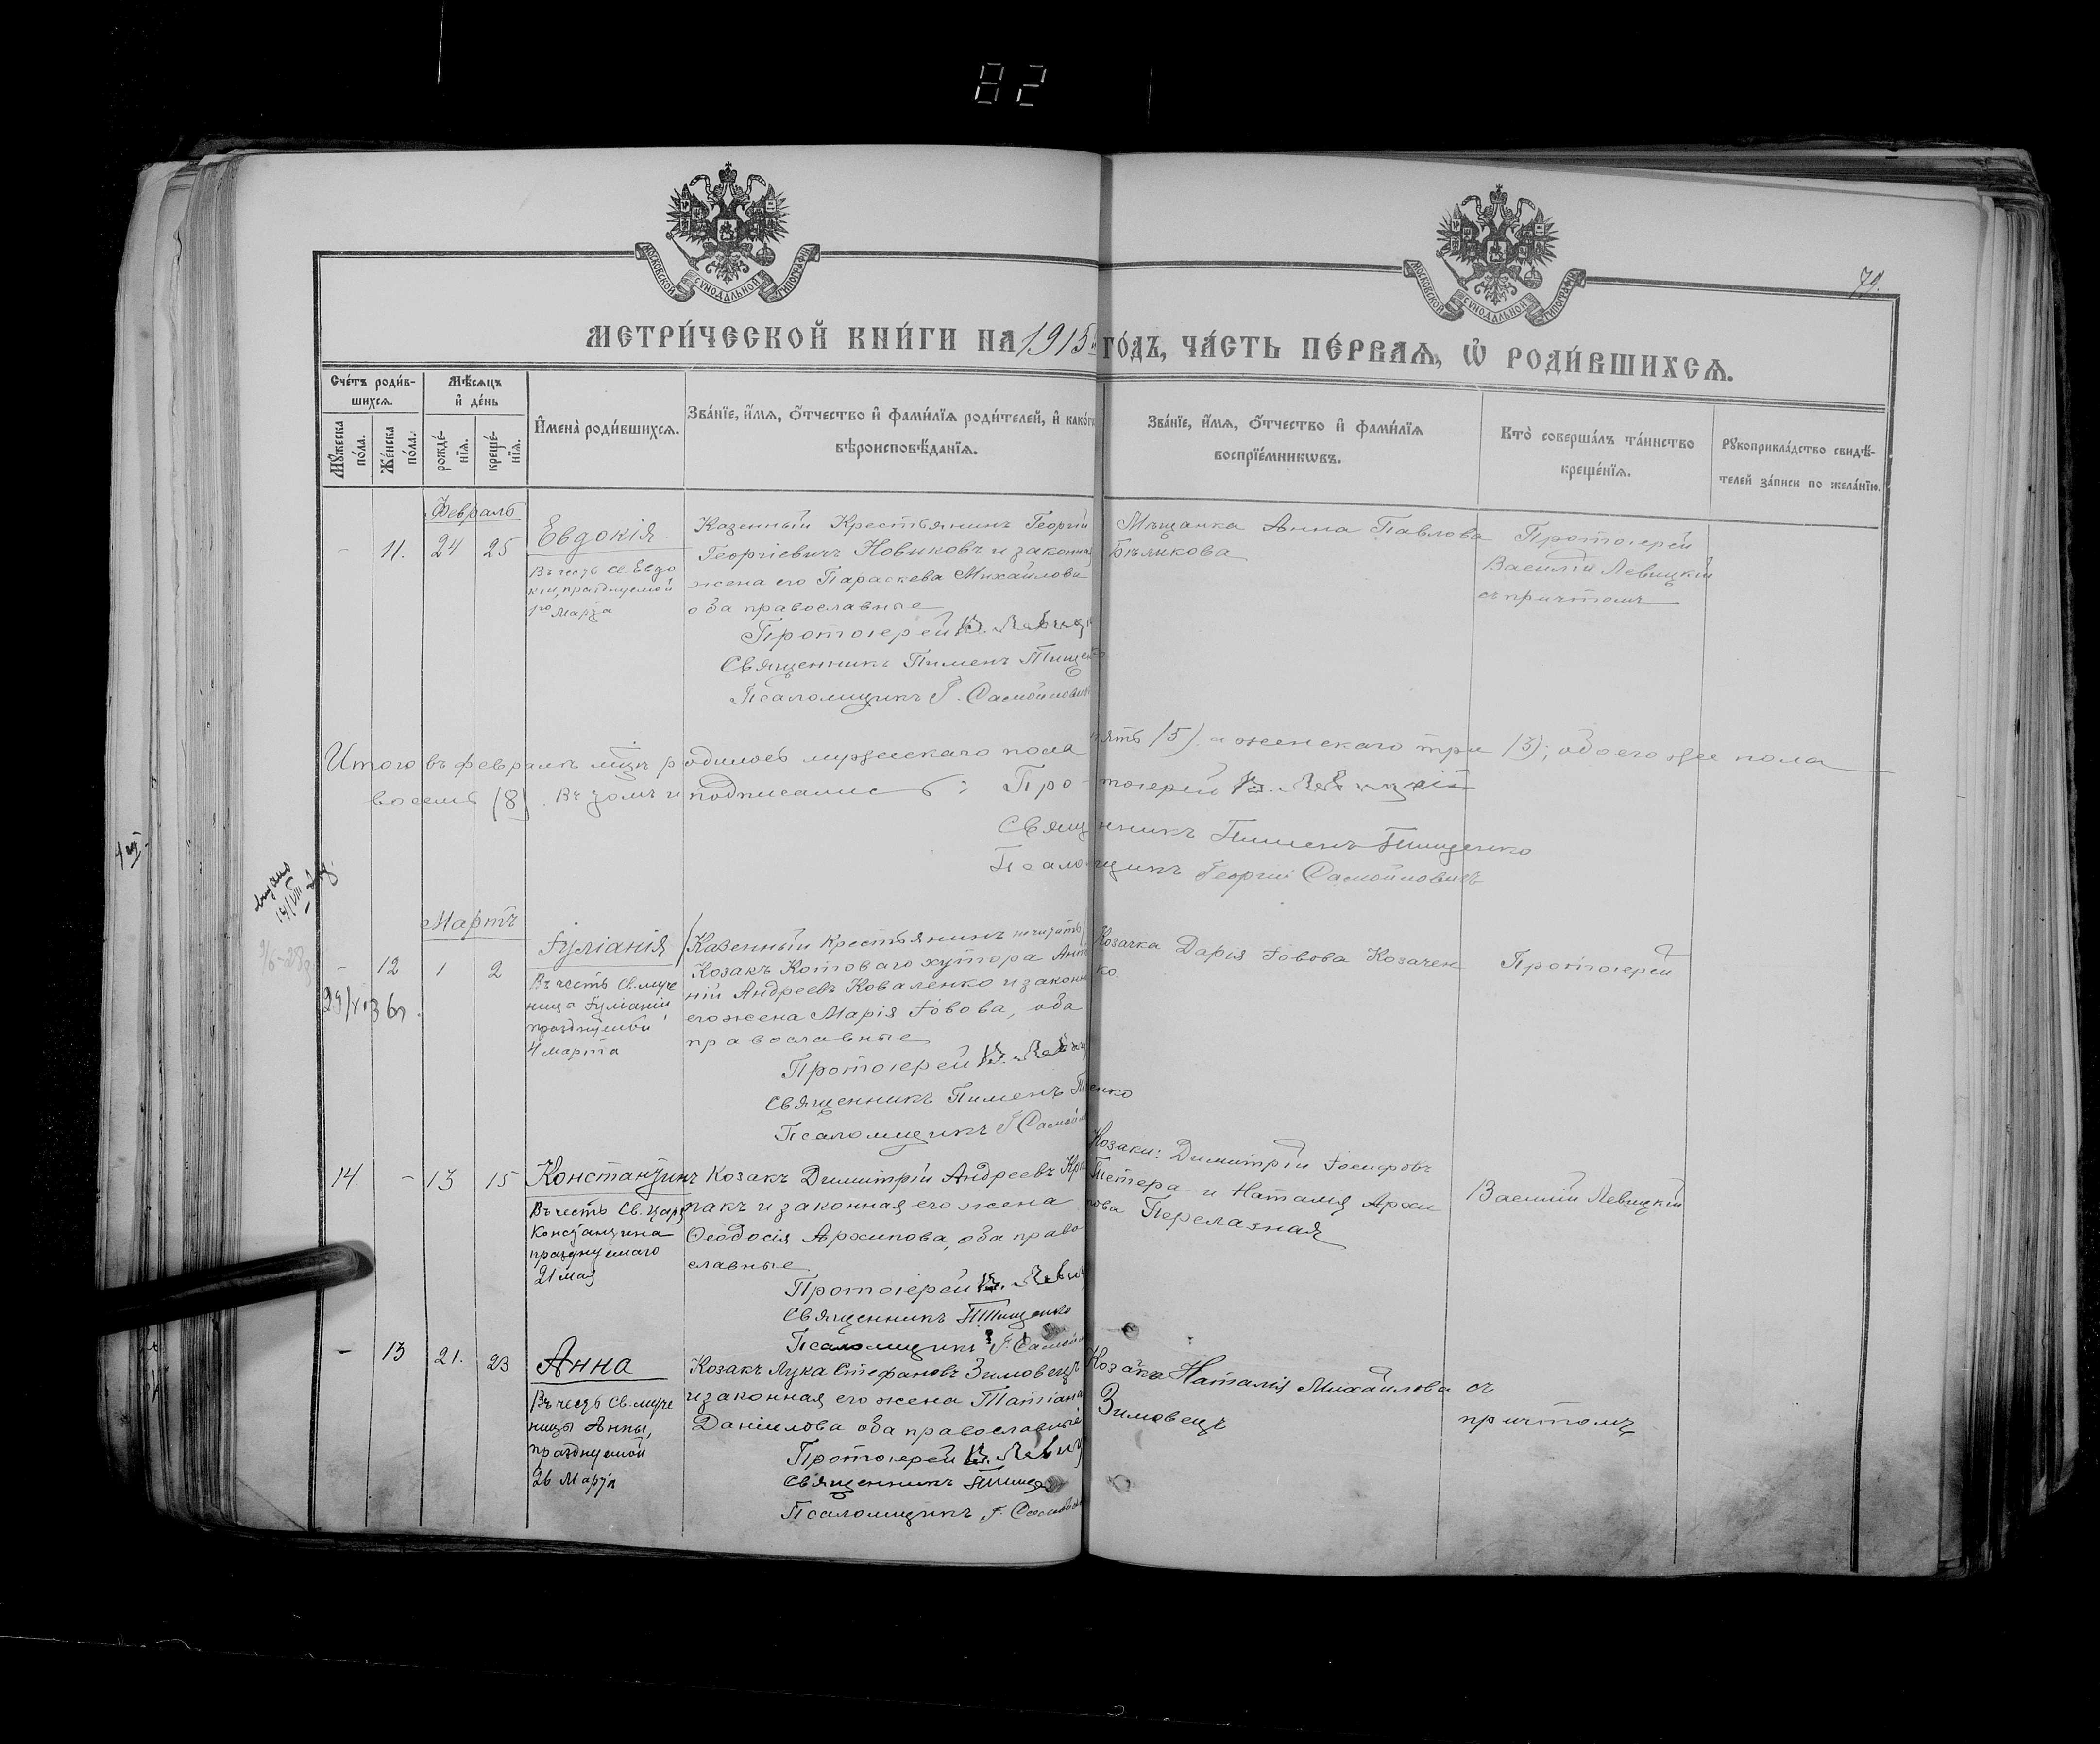 82
МОСКОВСКОЙ СѴНОДАЛЬНОЙ ТИПОГРАФІИ
МОСКОВСКОЙ СѴНОДАЛЬНОЙ ТИПОГРАФІИ
79.
МЕТРИ́ЧЕСКОЙ КНИ́ГИ НА 1915 й ГО́ДЪ, ЧА́СТЬ ПЕ́РВАѦ, Ѡ҆ РОДИ́ВШИХСѦ.
Сче́тъ роди́в-
шихсѧ.
Мꙋ́жеска по́ла.
Же́нска по́ла.
Мѣ́сѧцъ и҆ де́нь
рожде́-нїѧ.
креще́-нїѧ.
И҆мена̀ роди́вшихсѧ.
Зва́нїе, и҆́мѧ, ѻ҆́тчество и҆ фами́лїѧ роди́телей, и҆ како́гѡ
вѣроисповѣ́данїѧ.
Зва́нїе, и҆́мѧ, ѻ҆́тчество и҆ фами́лїѧ
воспрїе́мникѡвъ.
Кто̀ соверша́лъ та́инство
креще́нїѧ.
Рꙋкоприкла́дство свидѣ́-
телей за́писи по жела́нїю.
Февраль
- 11. 24 25 Евдокія
Въ честь Св. Евдо
кіи, празднуемой
1го Марта
Казенный Крестьянинъ Георгій
Георгіевичъ Новиковъ и законная
жена его Параскева Михайлова
оба православные
Протоіерей В. Левиц
Священникъ Пименъ Тищен
Псаломщикъ Г. Самойлович
Мѣщанка Анна Павлова
Бѣликова
Протоіерей
Василій Левицкій
съ причтомъ
Итого въ февралѣ м-цѣ родилось мужескаго пола пять (5) а женскаго три (3); обоего же пола
восемь (8). Въ томъ и подписались: Протоіерей В. Левицкій
Священникъ Пименъ Тищенко
Псаломщикъ Георгій Самойловичъ
Мартъ
- 12 1 2 Іуліанія
Въ честь Св. муче
ницы Іуліаніи
празднуемой
4 марта
(Казенный Крестьянинъ не читать)
Козакъ Котоваго хутора Анто
ній Андреевъ Коваленко и законн
его жена Марія Іовова, оба
православные
Протоіерей В. Левиц
Священникъ Пименъ Тищенко
Псаломщикъ Г. Самой
Козачка Дарія Іовова Козачен
ко
Протоіерей
14 - 13 15 Константинъ
Въ честь Св. Царя
Константина
празднуемаго
21 мая
Козакъ Димитрій Андреевъ
пакъ и законная его жена
Ѳеодосія Архипова, оба право
славные
Протоіерей В. Левиц
Священникъ П Тищенко
Псаломщикъ Г. Самой
Козаки: Димитрій Іосифовъ
Тетера и Наталія Архи
пова Перелазная
Василій Левицкій
- 13 21. 23 Анна
Въ честь Св. муче
ницы Анны,
празднуемой
26 Марта
Козакъ Лука Стефановъ Зимовецъ
и законная его жена Татіана
Даніилова оба православные
Протоіерей В. Левиц
Священникъ П Тищен
Псаломщикъ Г. Самойлов
Козачка Наталія Михайлова
Зимовецъ
съ
причтомъ